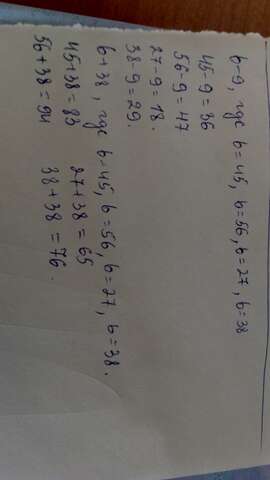 b-9, где b=45, b=56, b=27, b=38
45-9=36
56-9=47
27-9=18.
38-9=29.
b+38, где b-45, b=56, b=27, b=38.
45+38=83
27+38=65
56+38=94
38+38=76.